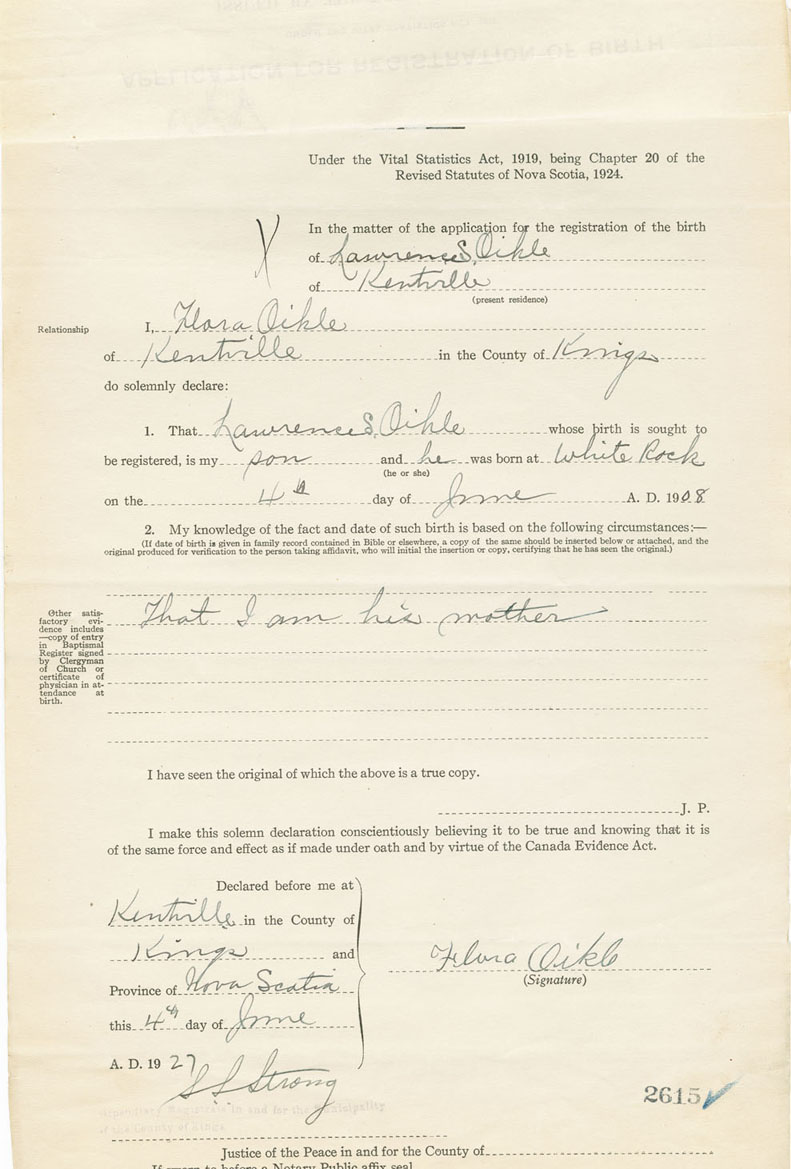 APPLICATION FOR REGISTRATION OF BIRTH
Under the Vital Statistics Act, 1919, being Chapter 20 of the
Revised Statutes of Nova Scotia, 1924.
In the matter of the application for the registration of the birth
of Lawrence S. Oikle
of Kentville
(present residence)
Relationship
I, Flora Oikle
of Kentville in the County of Kings
do solemnly declare:
1. That Lawrence S. Oikle whose birth is sought to
be registered, is my son and he was born at White Rock
(he or she)
on the 4th day of June A. D. 1908
2. My knowledge of the fact and date of such birth is based on the following circumstances:—
(If date of birth is given in family record contained in Bible or elsewhere, a copy of the same should be inserted below or attached, and the
original produced for verification to the person taking affidavit, who will initial the insertion or copy, certifying that he has seen the original.)
Other satis-
factory evi-
dence includes
—copy of entry
in Baptismal
Register signed
by Clergyman
of Church or
certificate of
physician in at-
tendance at
birth.
That I am his mother
I have seen the original of which the above is a true copy.
J. P.
I make this solemn declaration conscientiously believing it to be true and knowing that it is
of the same force and effect as if made under oath and by virtue of the Canada Evidence Act.
Declared before me at
Kentville in the County of
Kings and
Province of Nova Scotia
this 4th day of June
A. D. 1927
Flora Oikle
(Signature)
S S Strong
2615
Stipendiary Magistrate in and for the Municipality
of the County of Kings
Justice of the Peace in and for the County of
If sworn to before a Notary Public affix seal